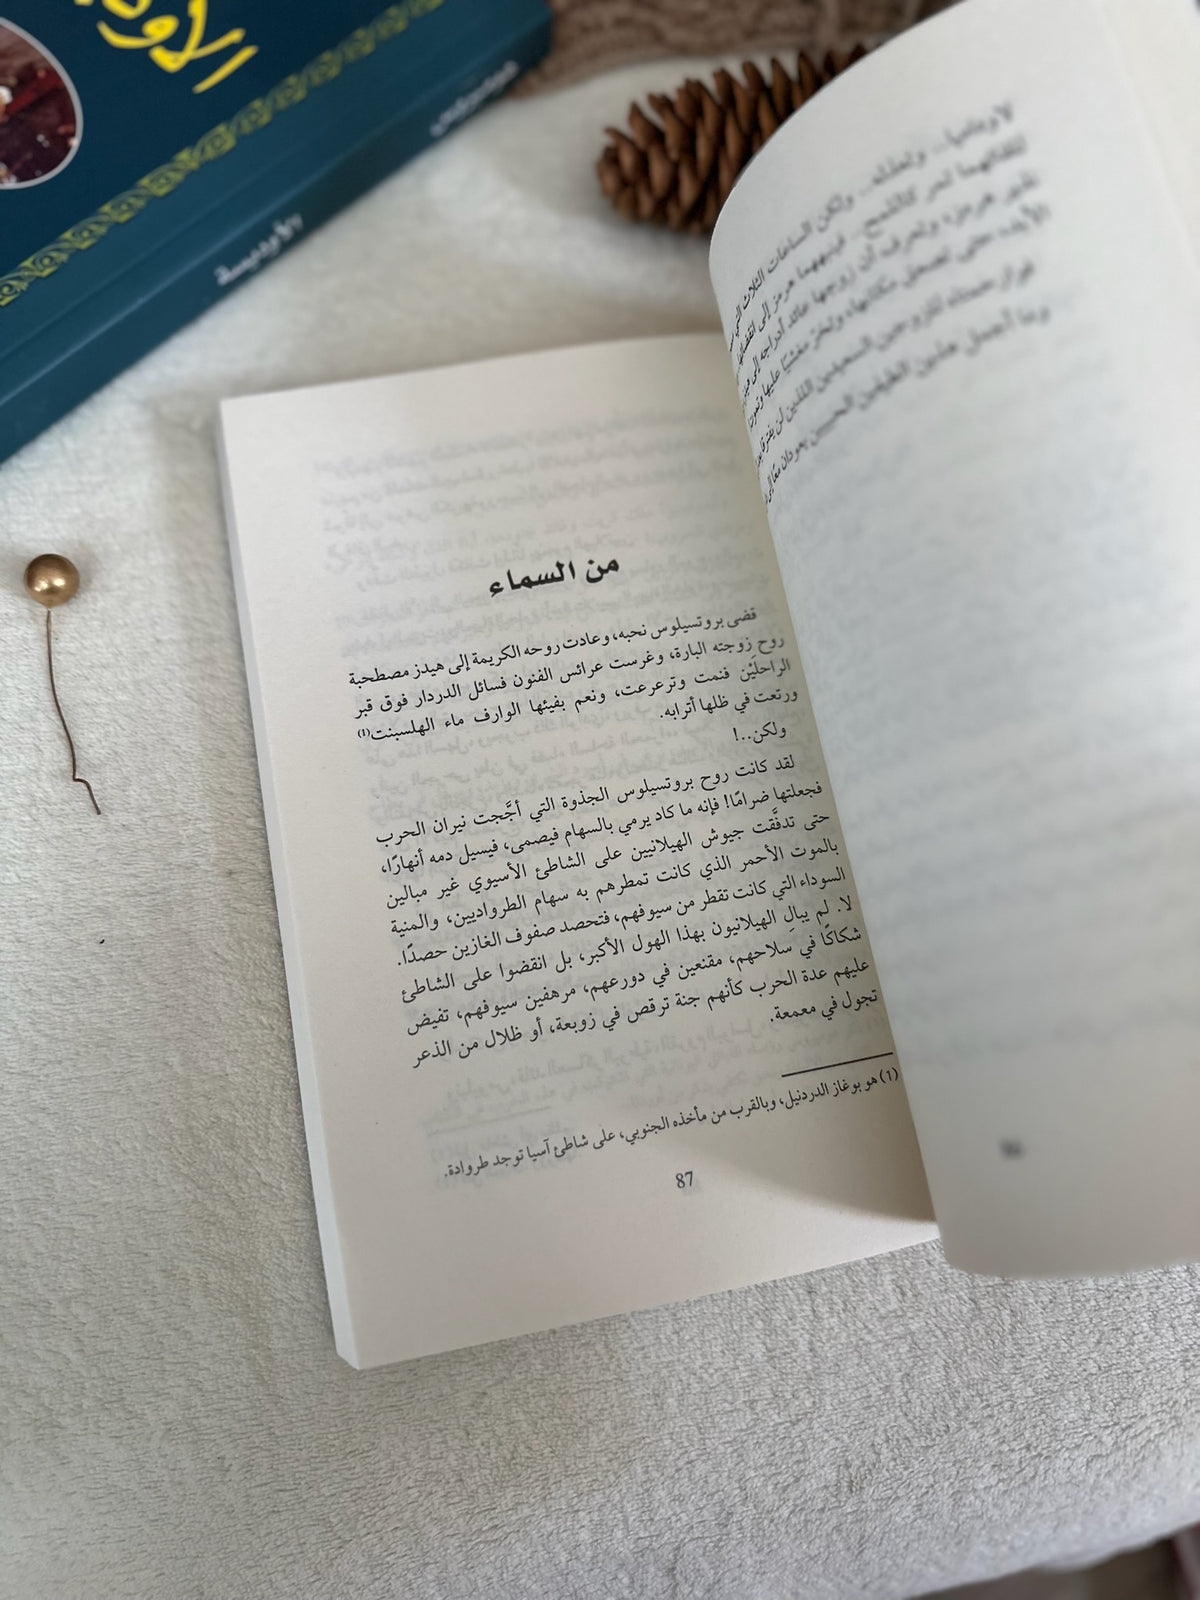 الأوديسة
هوميروس
من السماء
قضى بروتسيلوس نحبه، وعادت روحه الكريمة إلى هيدز مصطحبة
روح زوجته البارة، وغرست عرائس الفنون فسائل الدردار فوق قبر
الراحلَيْن فنمت وترعرعت، ونعم بفيئها الوارف ماء الهلسبنت(1)
ورتعت في ظلها أترابه.
ولكن..!
لقد كانت روح بروتسيلوس الجذوة التي أجَّجت نيران الحرب
فجعلتها ضرامًا! فإنه ما كاد يرمي بالسهام فيصمى، فيسيل دمه أنهارًا،
حتى تدفَّقت جيوش الهيلانيين على الشاطئ الأسيوي غير مبالين
بالموت الأحمر الذي كانت تمطرهم به سهام الطرواديين، والمنية
السوداء التي كانت تقطر من سيوفهم، فتحصد صفوف الغازين حصدًا.
لا. لم يبالِ الهيلانيون بهذا الهول الأكبر، بل انقضوا على الشاطئ
شكاكًا في سلاحهم، مقنعين في دورعهم، مرهفين سيوفهم، تفيض
عليهم عدة الحرب كأنهم جنة ترقص في زوبعة، أو ظلال من الذعر
تجول في معمعة.
(1) هو بوغاز الدردنيل، وبالقرب من مأخذه الجنوبي، على شاطئ آسيا توجد طروادة.
87
ولكن الساعات الثلاث التي
هرمز إلى
وتعرف أن زوجها عائد أدراجه إلى
مكانها، وتخرّ مغشيًا عليها وتموت
للزوجين السعيدين اللذين لن يفترقا
وما أجمل هذين الطيفين الحبيبين يعودان معًا إلى